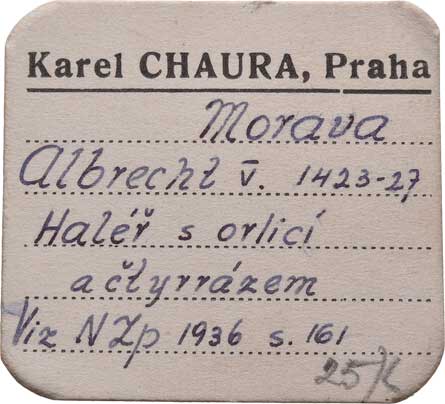 Karel CHAURA, Praha
Morava
Albrecht V. 1423-27
Haléř s orlicí
a čtyrrázem
Viz NZp 1936 s. 161